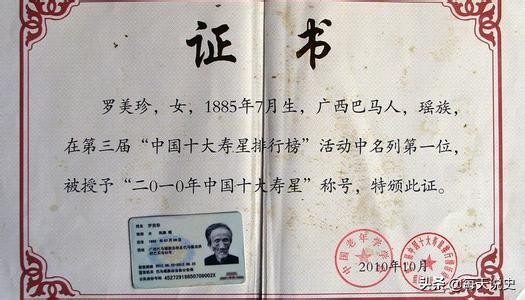 证书
罗美珍，女，1885年7月生，广西巴马人，瑶族，
在第三届“中国十大寿星排行榜”活动中名列第一位，
被授予“二〇一〇年中国十大寿星”称号，特颁此证。
罗美珍
女
瑶
中国老年学学
中国十大寿星排行榜
2010年10月
头条@海大说史